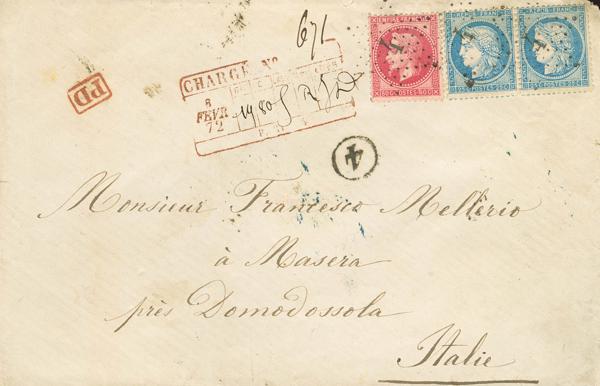 671
CHARGÉ Nº
8
FEVR
72
PD
4
EMPIRE FRANÇAIS
80 C POSTES 80 C
4
REPUB. FRANC.
25 C POSTES 25 C
4
REPUB. FRANC.
25 C POSTES 25 C
4
Monsieur Francesco Mellerio
à Masera
près Domodossola
Italie